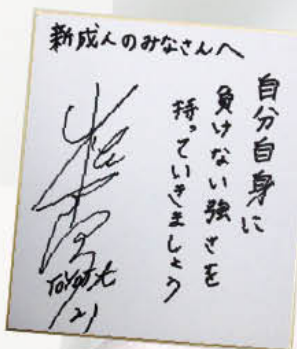 新成人のみなさんへ
自分自身に
負けない強さを
持っていきましょう
21